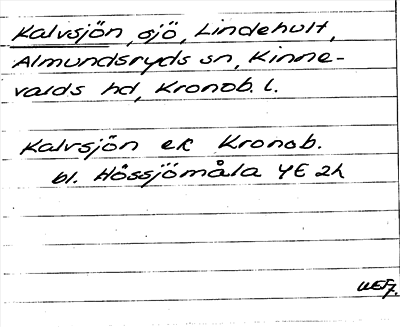 Kalvsjön, sjö, Lindehult,
Almundsryds sn, Kinne-
valds hd, Kronob. l.
Kalvsjön ek Kronob.
bl. Hössjömåla 4E 2h